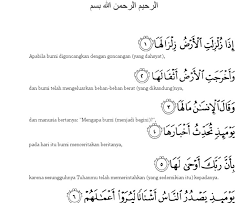 الرحيم الرحمن الله بسم
إِذَا زُلْزِلَتِ ٱلْأَرْضُ زِلْزَالَهَا ١
Apabila bumi digoncangkan dengan goncangan (yang dahsyat),
وَأَخْرَجَتِ ٱلْأَرْضُ أَثْقَالَهَا ٢
dan bumi telah mengeluarkan beban-beban berat (yang dikandung)nya,
وَقَالَ ٱلْإِنسَٰنُ مَا لَهَا ٣
dan manusia bertanya: "Mengapa bumi (menjadi begini)?",
يَوْمَئِذٍ تُحَدِّثُ أَخْبَارَهَا ٤
pada hari itu bumi menceritakan beritanya,
بِأَنَّ رَبَّكَ أَوْحَىٰ لَهَا ٥
karena sesungguhnya Tuhanmu telah memerintahkan (yang sedemikian itu) kepadanya.
يَوْمَئِذٍ يَصْدُرُ ٱلنَّاسُ أَشْتَاتًا لِّيُرَوْا۟ أَعْمَٰلَهُمْ ٦